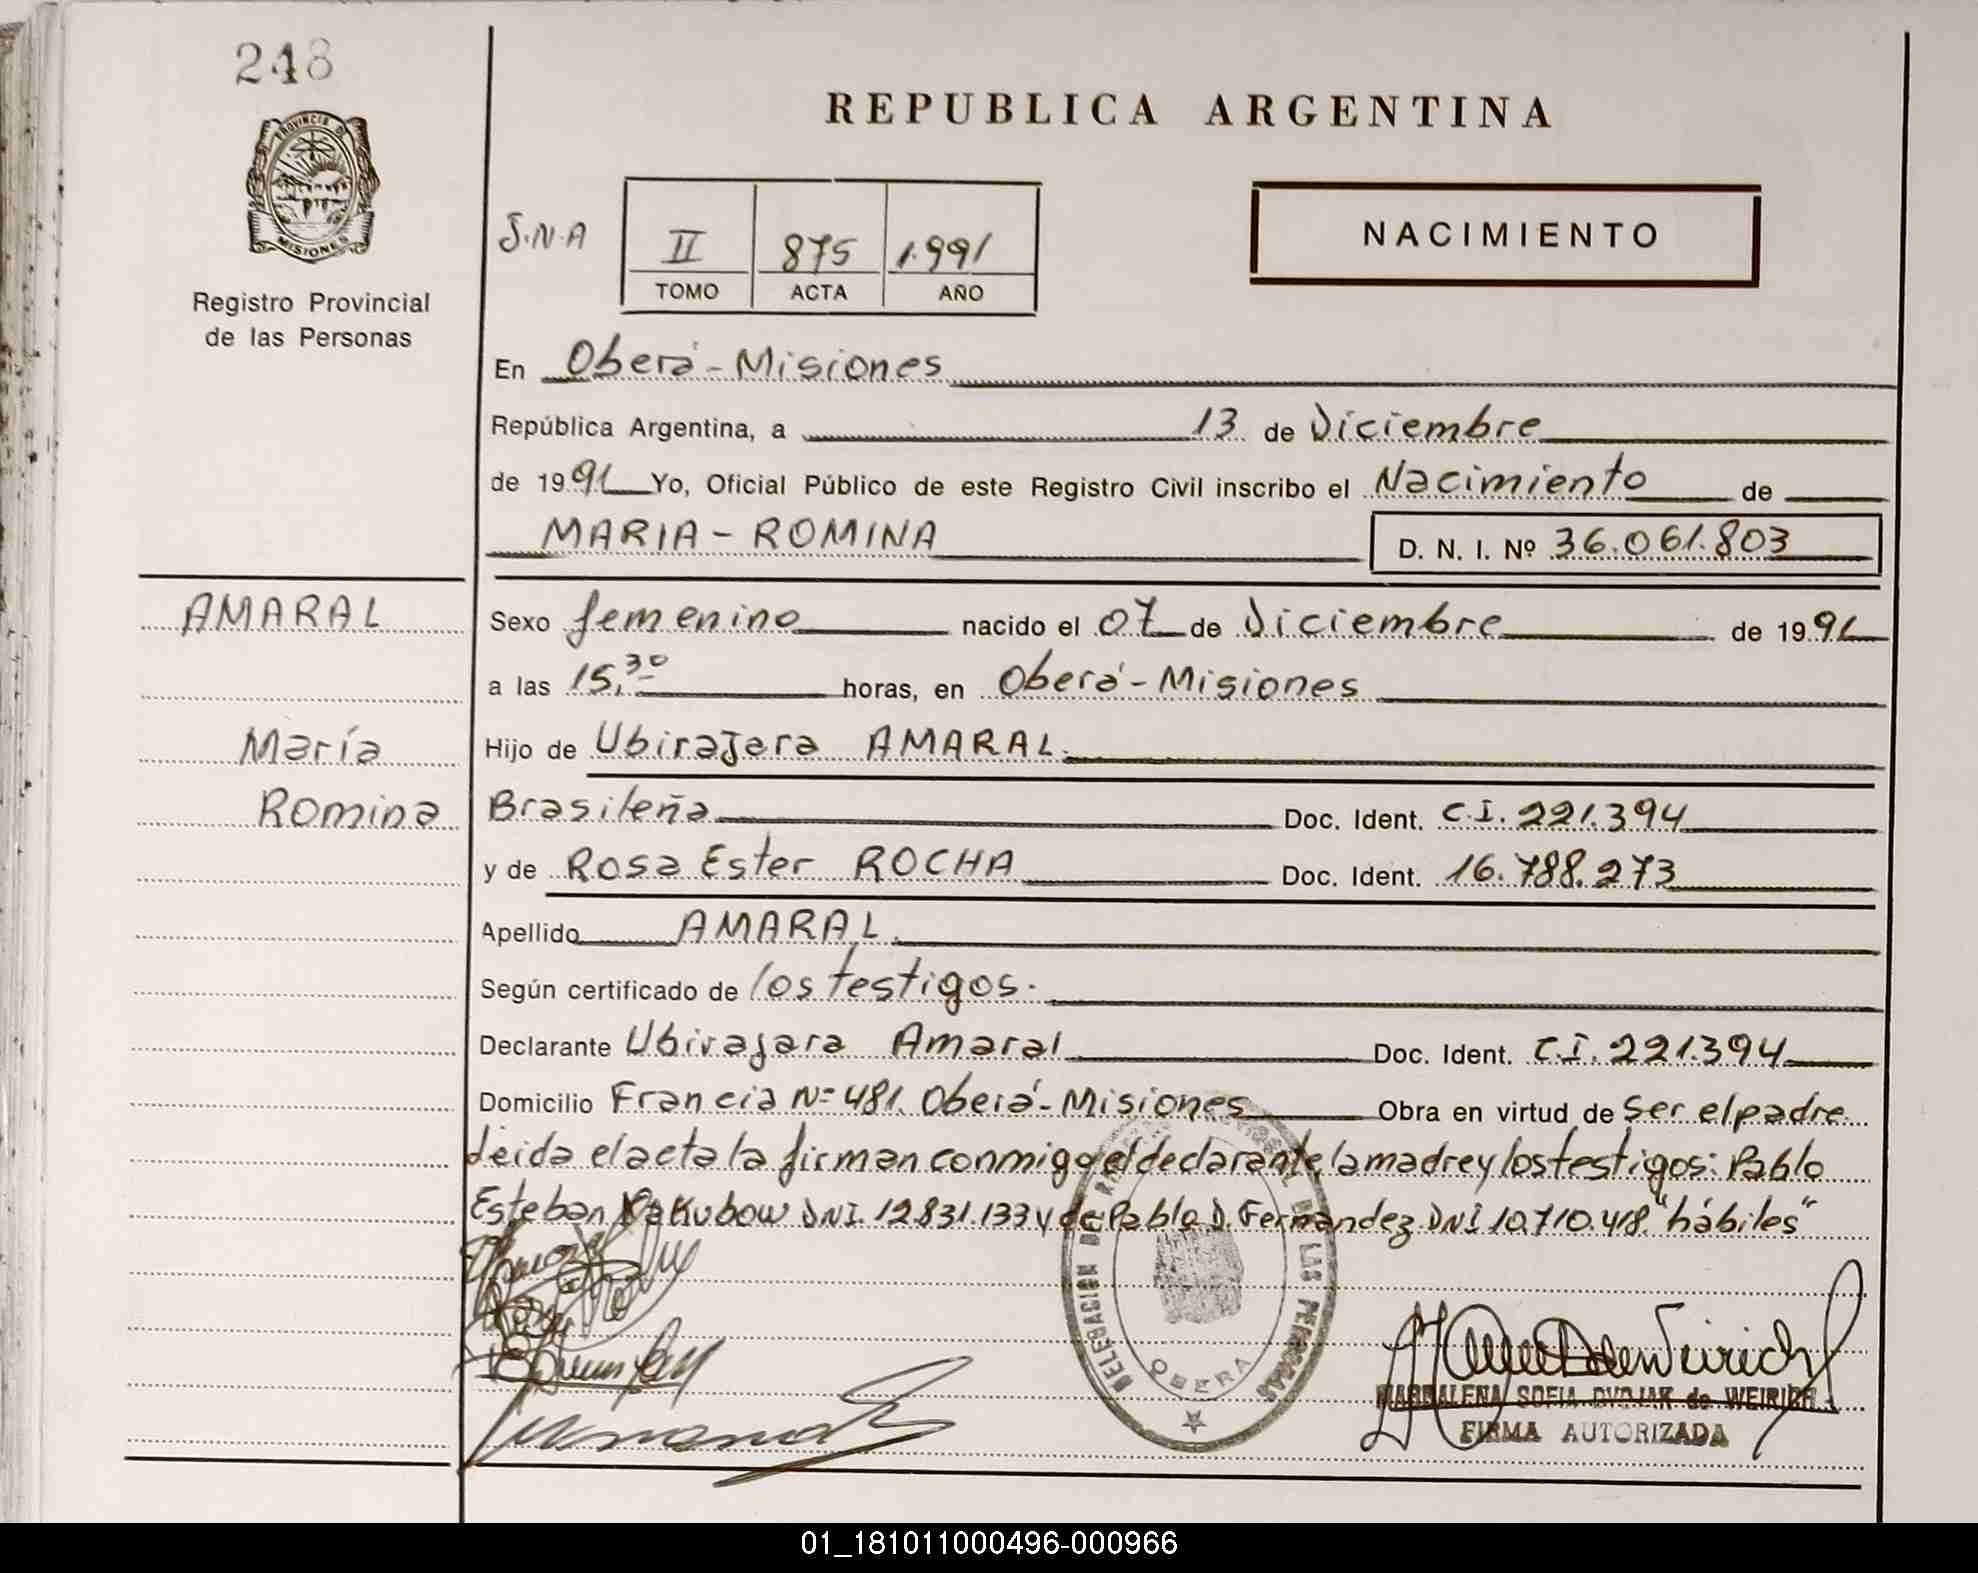 248
PROVINCIA D
MISIONES
Registro Provincial
de las Personas
REPUBLICA ARGENTINA
NACIMIENTO
S.N.A
II 875 1.991
TOMO ACTA AÑO
En Oberá - Misiones
República Argentina, a 13 de Diciembre
de 1991 Yo, Oficial Público de este Registro Civil inscribo el Nacimiento de
MARIA - ROMINA D. N. I. Nº 36.061.803
AMARAL
María
Romina
Sexo femenino nacido el 07 de Diciembre de 1991
a las 15,30 horas, en Oberá - Misiones
Hijo de Ubirajara AMARAL.
Brasileña Doc. Ident. C.I. 221.394
y de Rosa Ester ROCHA Doc. Ident. 16.788.273
Apellido AMARAL.
Según certificado de los testigos.
Declarante Ubirajara Amaral Doc. Ident. C.I. 221.394
Domicilio Francia Nº 481. Oberá - Misiones Obra en virtud de Ser el padre.
Leida el acta la firman conmigo el declarante, la madre y los testigos: Pablo
Esteban DNI. 12.831.133 y de Pablo D. Fernandez DNI 10.710.418. "hábiles"
DELEGACION DE LAS PERSONAS
OBERA
MAGDALENA SOFIA DVOJAK de WEIRICH
FIRMA AUTORIZADA
01_181011000496-000966